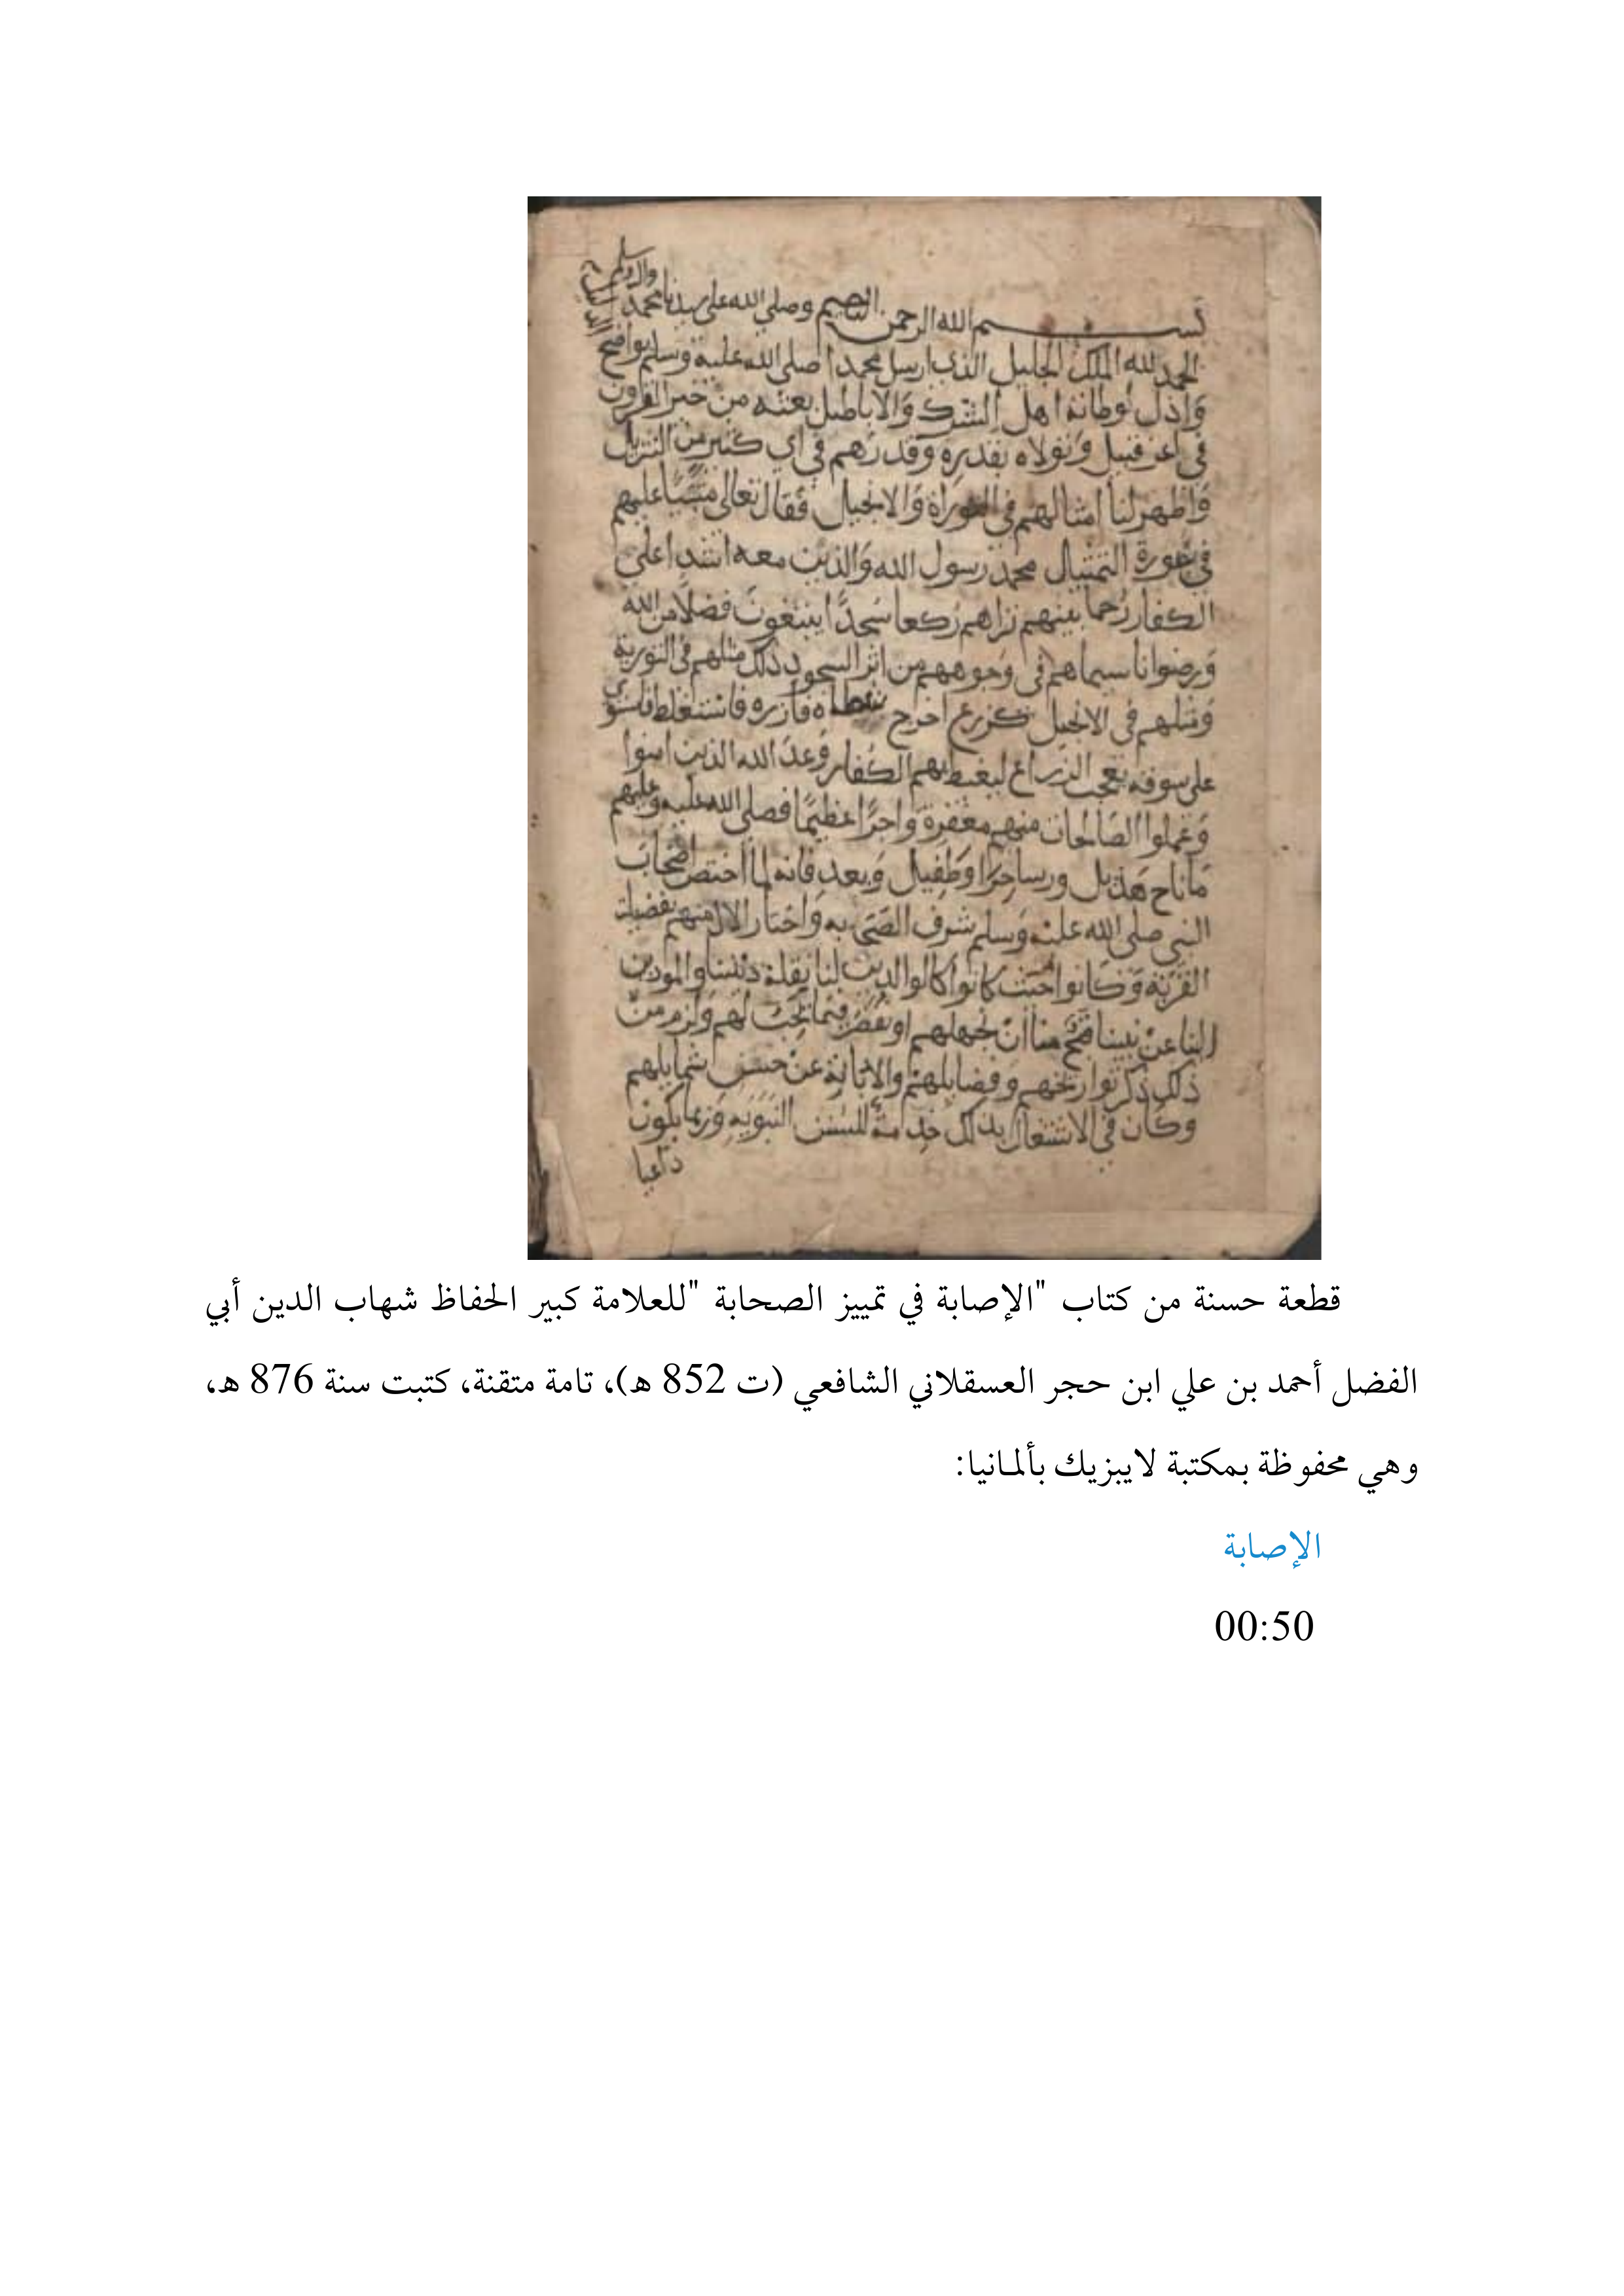 بسم الله الرحمن الرحيم وصلى الله على سيدنا محمد واله وسلم
الحمد لله الملك الجليل الذي ارسل محمدا صلى الله عليه وسلم بواضح
واذل اهل الشرك والاباطيل بعثه من خير القرون
في اعز قبيل بقدره وقدرهم في اي كثير من التنزيل
واظهر لنا امثالهم في التوراة والانجيل فقال تعالى عليهم
في التمثيال محمد رسول الله والذين معه اشدا على
الكفار رحما بينهم تراهم ركعا سجدا يبتغون فضلا من الله
ورضوانا سيماهم في وجوههم من اثر السجود ذلك مثلهم في التورية
ومثلهم في الانجيل كزرع اخرج شطاه فازره فاستغلظ فاستوى
على سوقه يعجب الزراع ليغيظ بهم الكفار وعد الله الذين امنوا
وعملوا الصالحات منهم مغفرة واجرا عظيما فصلى الله عليه وعليهم
ما ناح هذيل وطفيل وبعد فانه لما اختص اصحاب
النبي صلى الله عليه وسلم شرف به واختار الال منهم بفضيلة
وكانوا كانوا لنا نقلة ديننا
الينا عن نبينا منا ان نجهلهم او فيما يجب لهم ولزم من
ذلك ذكر تواريخهم وفضايلهم والابانة عن حسن شمايلهم
وكان في الاشتغال بذلك خدمة للسنن النبويه وربما يكون
داعيا
قطعة حسنة من كتاب "الإصابة في تمييز الصحابة "للعلامة كبير الحفاظ شهاب الدين أبي
الفضل أحمد بن علي ابن حجر العسقلاني الشافعي (ت 852 هـ)، تامة متقنة، كتبت سنة 876 هـ،
وهي محفوظة بمكتبة لايبزيك بألمانيا:
الإصابة
00:50